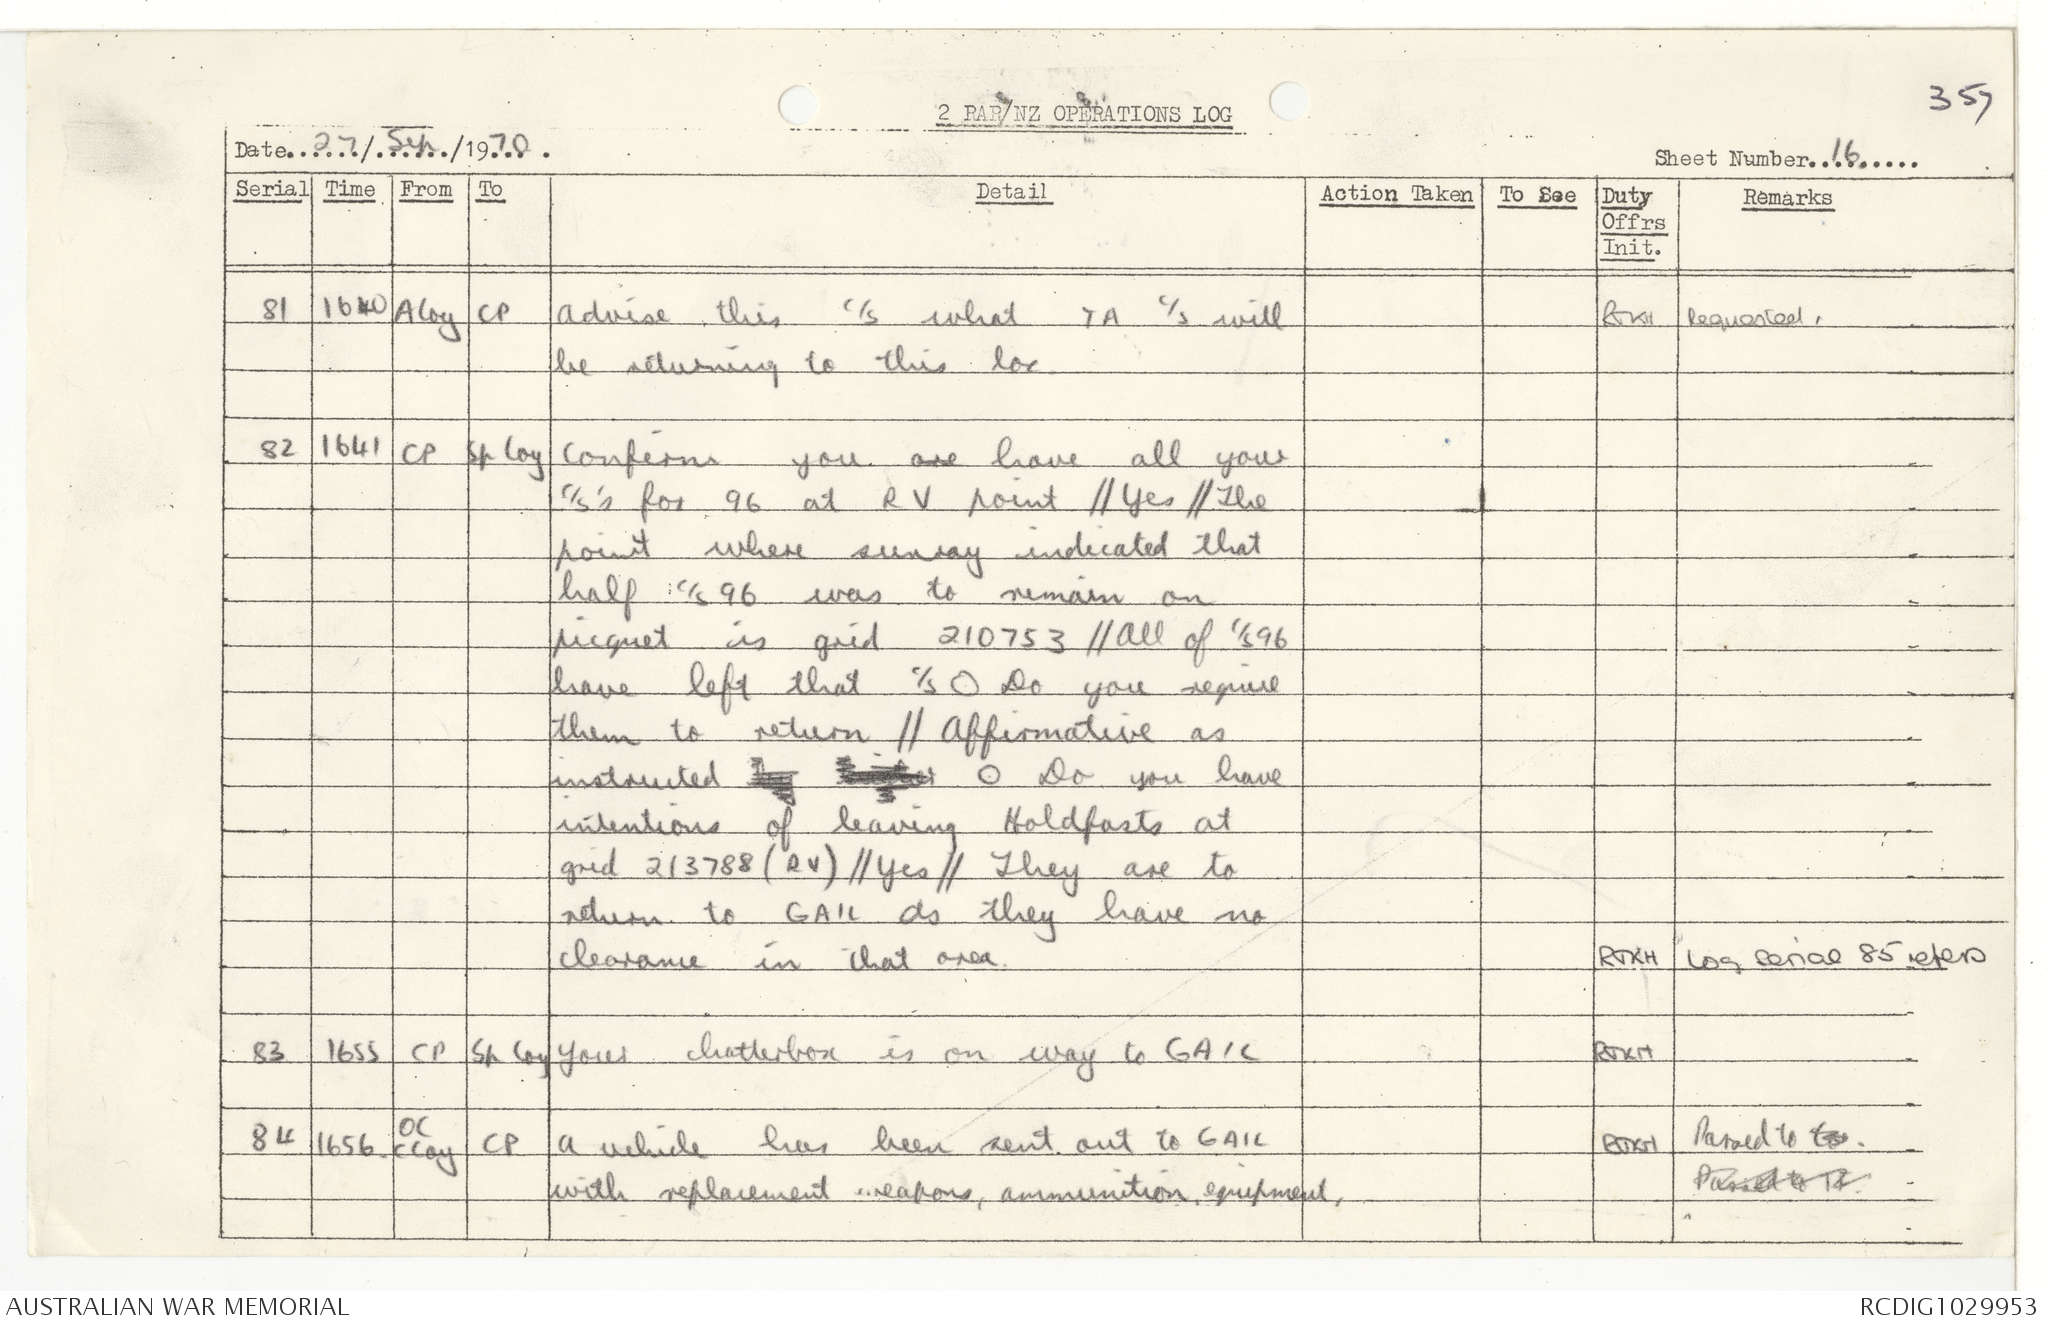 357
2 RAR/NZ OPERATIONS LOG
Date..27./.Sep./1970..
Sheet Number..16.....
Serial Time From To Detail Action Taken To See Duty Offrs Init. Remarks
81 1640 A Coy CP Advise this c/s what TA c/s will RJKH Requested.
be returning to this loc.
82 1641 CP Sp Coy Confirm you are have all your
c/s's for 96 at RV point // Yes // The
point where sunray indicated that
half c/s 96 was to remain on
picquet is grid 210753 // All of c/s 96
have left that c/s O Do you require
them to return // Affirmative as
instructed O Do you have
intentions of leaving Holdfasts at
grid 213788 (RV) // Yes // They are to
return to GAIL as they have no
clearance in that area. RJKH Log serial 85 refers
83 1655 CP Sp Coy Your chatterbox is on way to GAIL RJKH
84 1656. OC C Coy CP A vehicle has been sent out to GAIL RJKH Passed to
with replacement weapons, ammunition, equipment, Passed to
AUSTRALIAN WAR MEMORIAL
RCDIG1029953